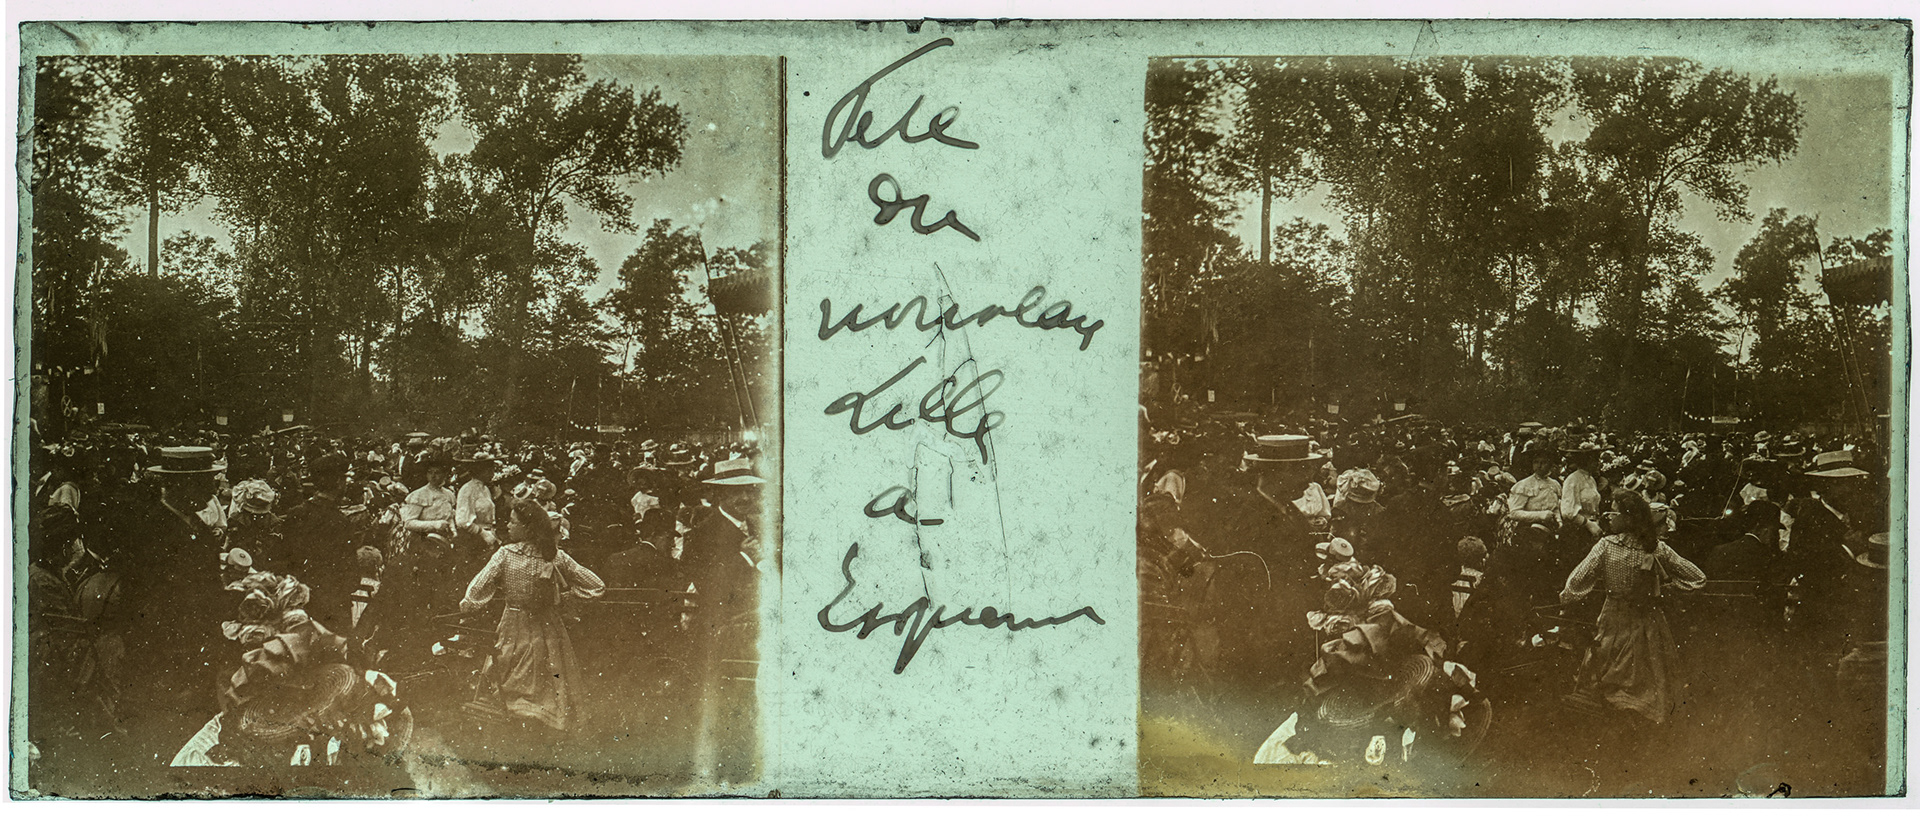 Fete
du
nouveau
Lille
a
Esquerm